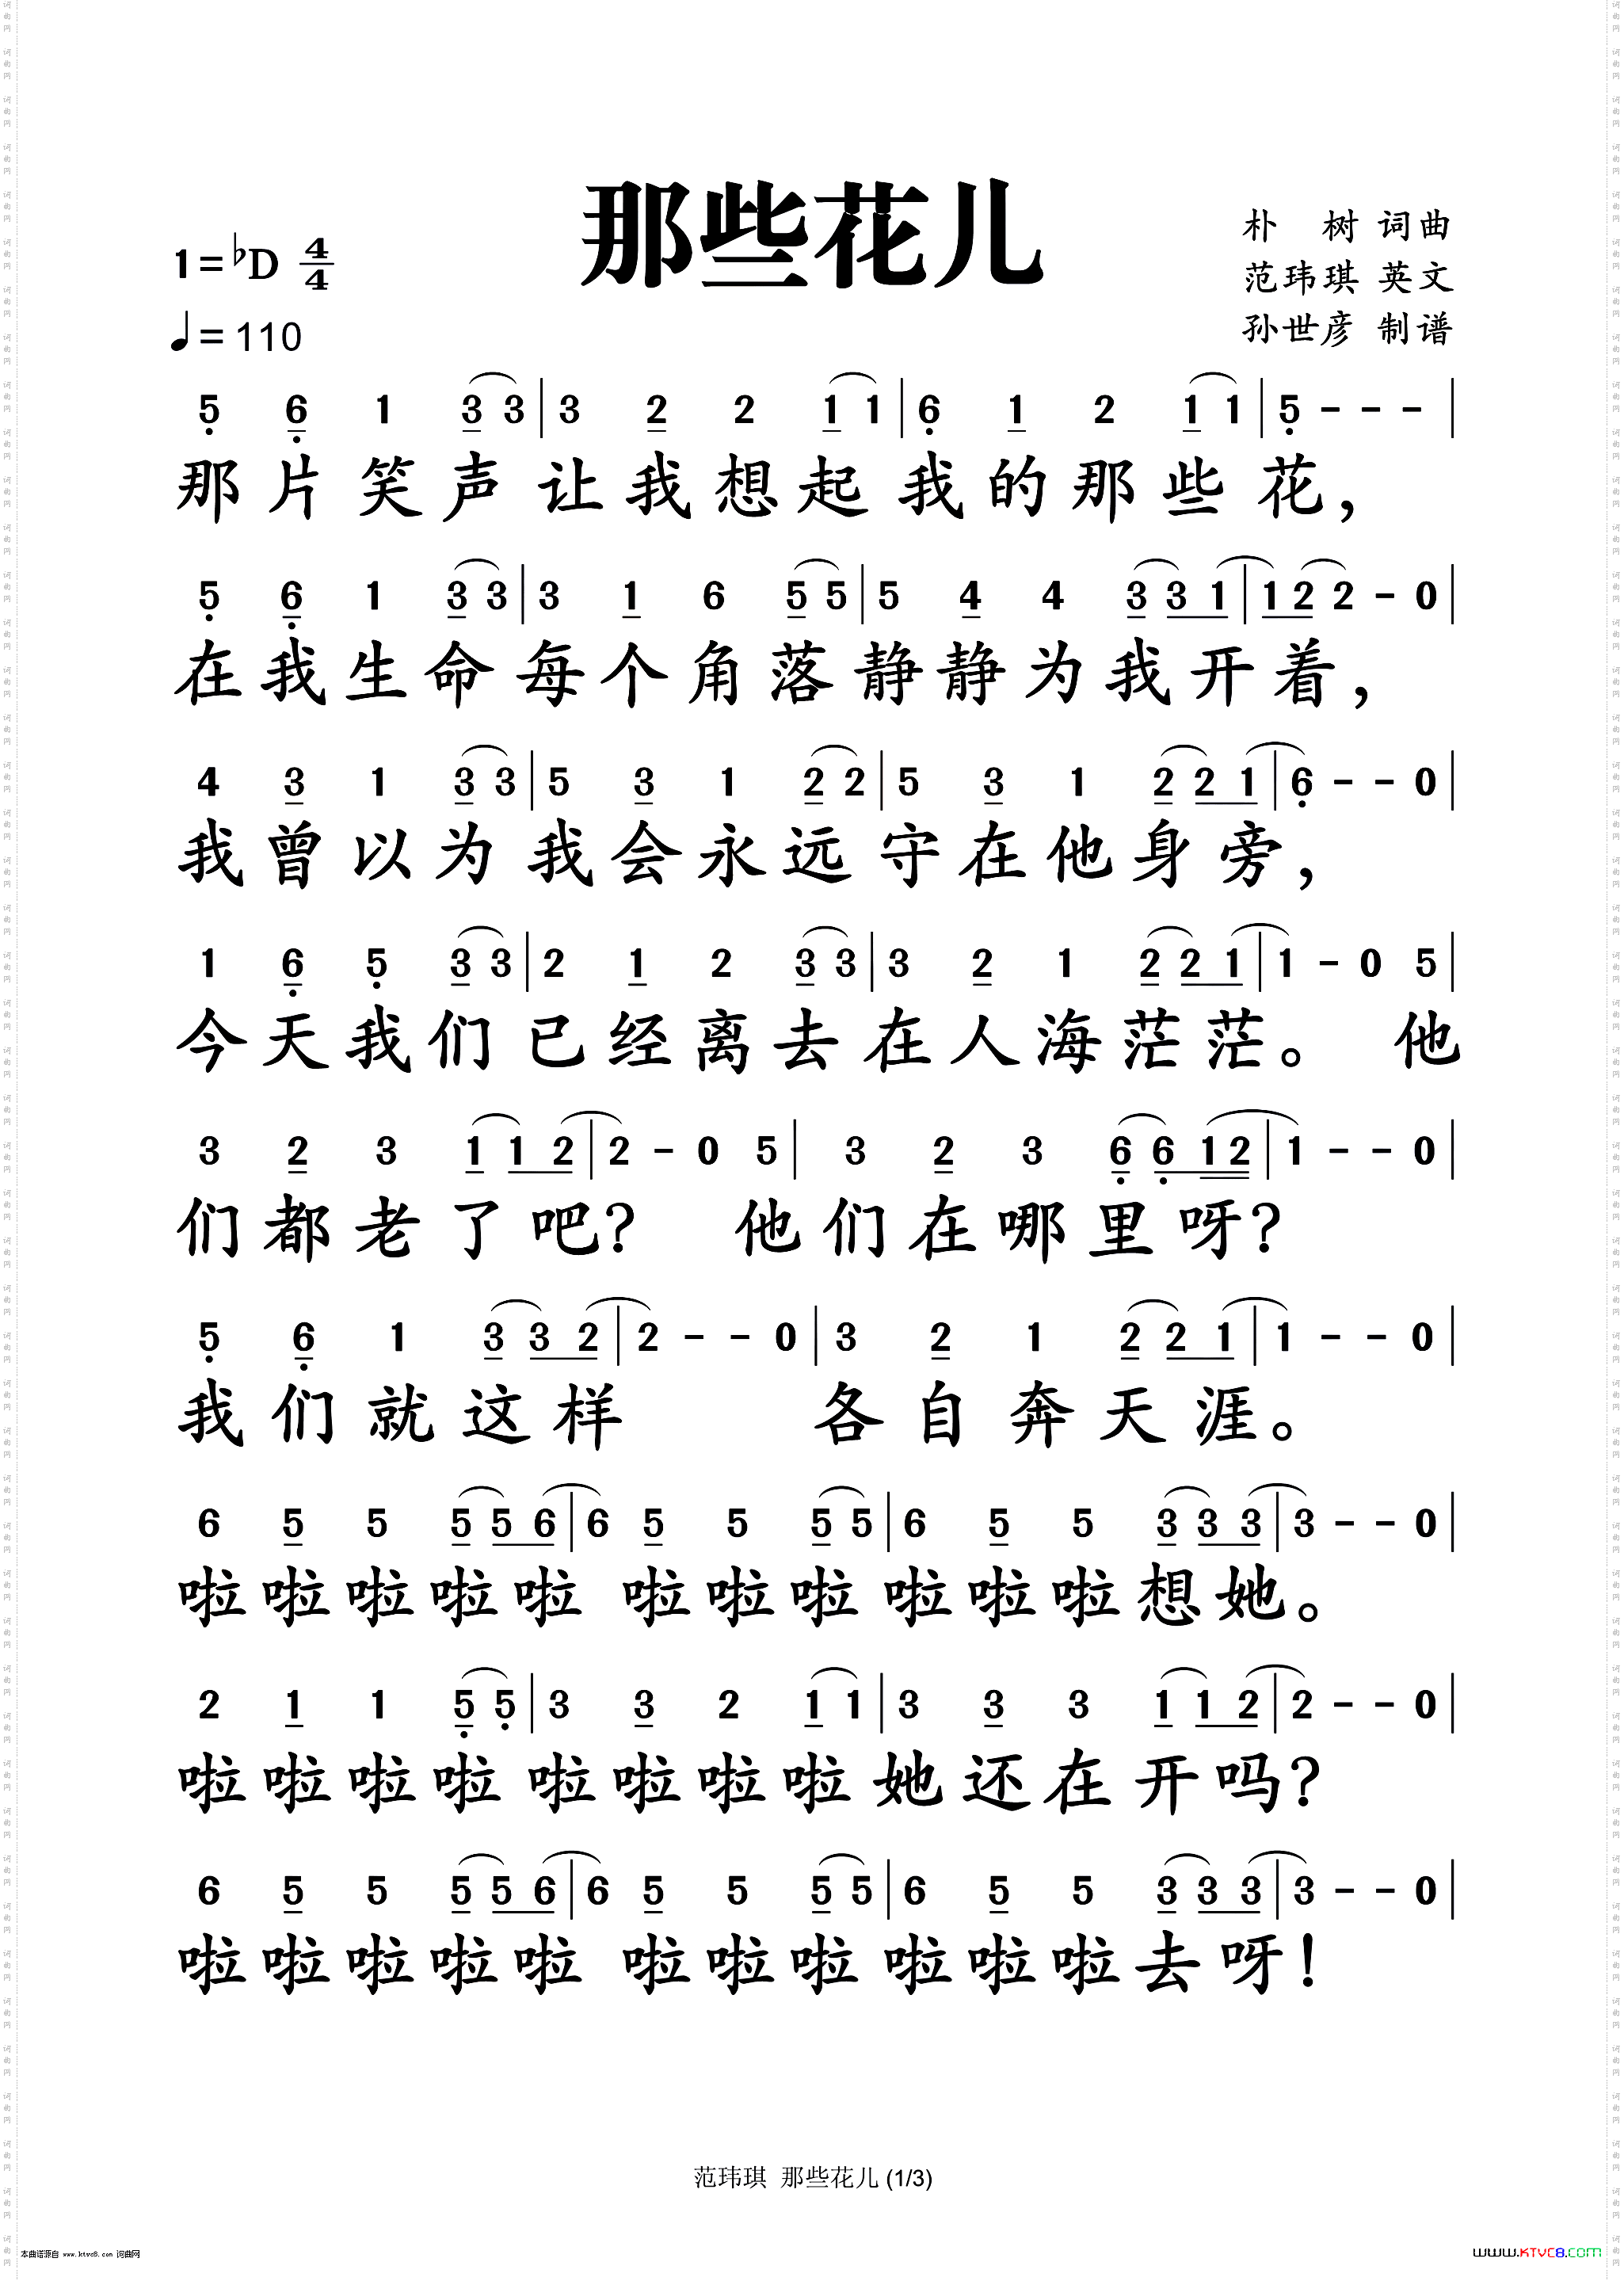 那些花儿
1=♭D 4/4
♩=110
朴 树 词曲
范玮琪 英文
孙世彦 制谱
5 6 1 3 3 | 3 2 2 1 1 | 6 1 2 1 1 | 5 - - - |
那片笑声让我想起我的那些花，
5 6 1 3 3 | 3 1 6 5 5 | 5 4 4 3 3 1 | 1 2 2 - 0 |
在我生命每个角落静静为我开着，
4 3 1 3 3 | 5 3 1 2 2 | 5 3 1 2 2 1 | 6 - - 0 |
我曾以为我会永远守在他身旁，
1 6 5 3 3 | 2 1 2 3 3 | 3 2 1 2 2 1 | 1 - 0 5 |
今天我们已经离去在人海茫茫。 他
3 2 3 1 1 2 | 2 - 0 5 | 3 2 3 6 6 1 2 | 1 - - 0 |
们都老了吧? 他们在哪里呀?
5 6 1 3 3 2 | 2 - - 0 | 3 2 1 2 2 1 | 1 - - 0 |
我们就这样 各自奔天涯。
6 5 5 5 5 6 | 6 5 5 5 5 | 6 5 5 3 3 3 | 3 - - 0 |
啦啦啦啦啦 啦啦啦啦啦啦想她。
2 1 1 5 5 | 3 3 2 1 1 | 3 3 3 1 1 2 | 2 - - 0 |
啦啦啦啦啦啦啦啦她还在开吗?
6 5 5 5 5 6 | 6 5 5 5 5 | 6 5 5 3 3 3 | 3 - - 0 |
啦啦啦啦啦 啦啦啦啦啦啦去呀!
范玮琪 那些花儿 (1/3)
本曲谱源自 www.ktvc8.com 词曲网
WWW.KTVC8.COM